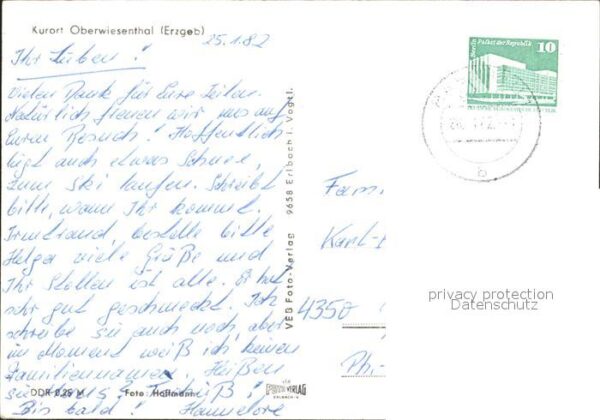 Kurort Oberwiesenthal (Erzgeb)
25.1.82
Ihr Lieben!
Vielen Dank für Eure Zeilen.
Natürlich freuen wir uns auf
Euren Besuch! Hoffentlich
liegt auch etwas Schnee,
zum Ski laufen. Schreibt
bitte, wann Ihr kommt.
Irmtraud, bestelle bitte
Helga viele Grüße und
Ihr Stollen ist alle. Er hat
sehr gut geschmeckt. Ich
schreibe sie auch noch, aber
im Moment weiß ich keinen
Familiennamen. Heißen
sie
Bis bald! Hannelore
DDR 0,25 M Foto: Hoffmann
VEB Foto-Verlag 9658 Erlbach i. Vogtl.
Berlin Palast der Republik
10
Fam
Karl-
4350
Ph.-
privacy protection
Datenschutz